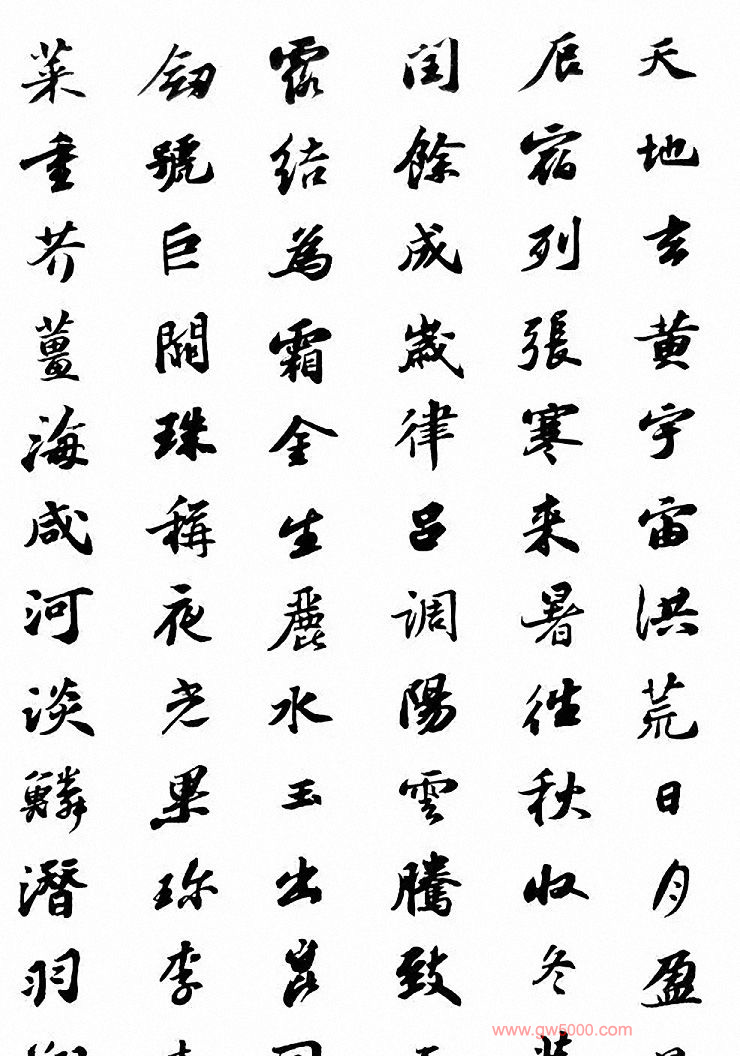 天地玄黄宇宙洪荒日月盈
辰宿列張寒来暑往秋收冬
閏餘成歲律呂調陽雲騰致
露結為霜金生麗水玉出崑
劒號巨闕珠稱夜光果珎李
菜重芥薑海咸河淡鱗潛羽
www.gw5000.com